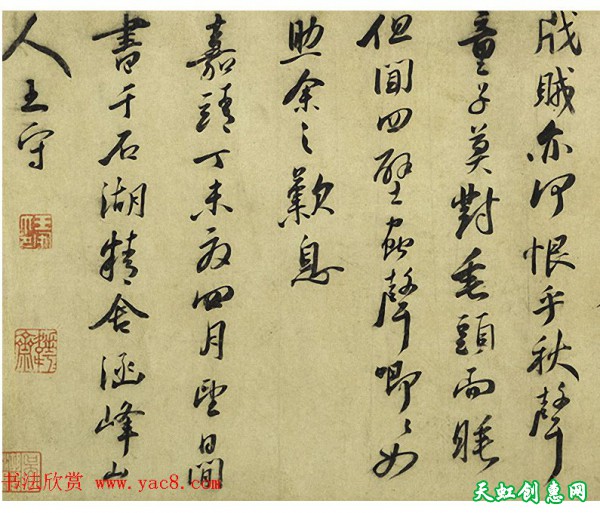 戕賊亦何恨乎秋聲
童子莫對垂頭而睡
但聞四壁蟲聲唧〻如
助余之歎息
嘉靖丁未夏四月望日閒
書于石湖精舍涵峰山
人王守
书法欣赏 www.yac8.com
天虹创惠网